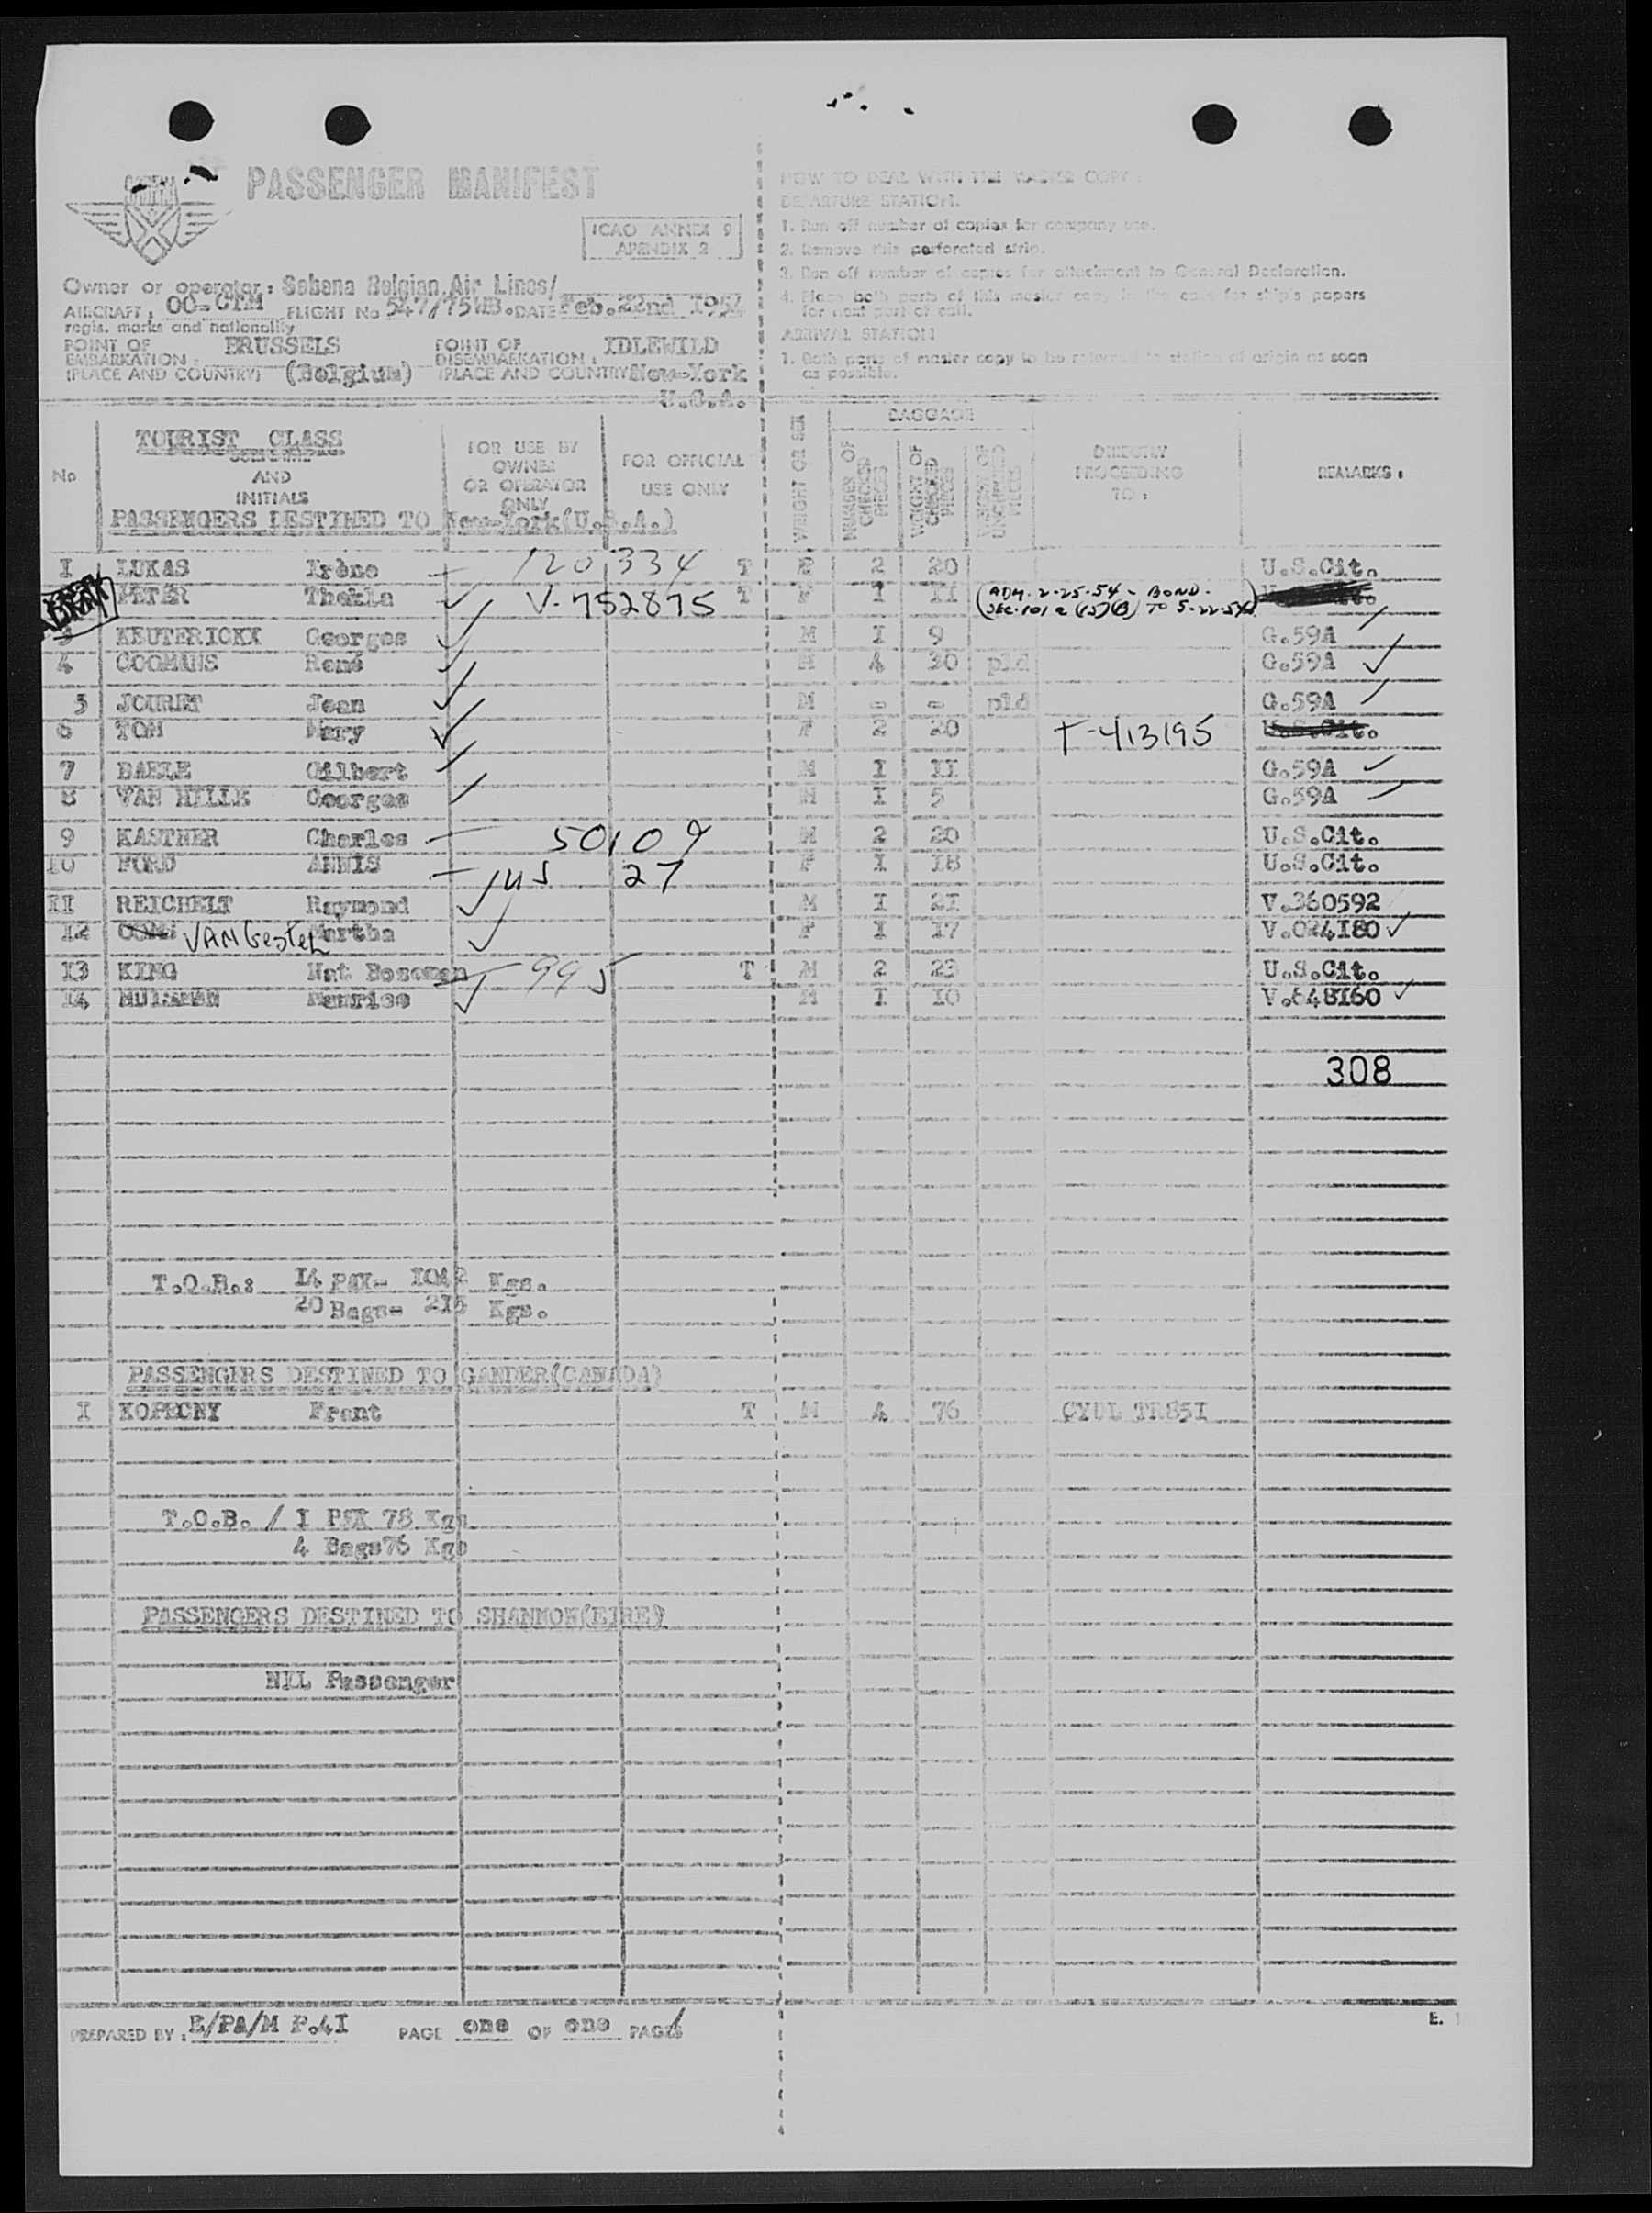 PASSENGER MANIFEST
ICAO ANNEX 9
APENDIX 2
Owner or operator: Sabena Belgian Air Lines/
AIRCRAFT: OO-CTM FLIGHT No 547/75WB. DATE Feb. 22nd 1954
regis. marks and nationality
POINT OF EMBARKATION: BRUSSELS
(PLACE AND COUNTRY) (Belgium)
POINT OF DISEMBARKATION: IDLEWILD
(PLACE AND COUNTRY) New-York
U.S.A.
HOW TO DEAL WITH THE MASTER COPY:
DEPARTURE STATION.
1. Run off number of copies for company use.
2. Remove this perforated strip.
3. Run off number of copies for attachment to General Declaration.
4. Place both parts of this master copy in the case for ship's papers
for next port of call.
ARRIVAL STATION
1. Both parts of master copy to be returned to station of origin as soon
as possible.
No
TOURIST CLASS
AND
INITIALS
FOR USE BY
OWNER
OR OPERATOR
ONLY
FOR OFFICIAL
USE ONLY
WEIGHT OR SEX
BAGGAGE
NUMBER OF CHECKED PIECES
WEIGHT OF CHECKED PIECES
WEIGHT OF UNCHECKED PIECES
DIRECTLY
PROCEEDING
TO:
REMARKS:
PASSENGERS DESTINED TO New-York (U.S.A.)
I LUKAS Irène 120334 T F 2 20 U.S.Cit.
PETER Thekla V-752875 T F I II (ADM. 2-25-54 - BOND.
SEC. 101 a (15)(B) TO 5-22-54)
3 KEUTERICKX Georges M I 9 G.59A
4 COOMANS René M 4 30 pld G.59A
5 JOURET Jean M - - pld G.59A
6 TOM Mary F 2 20 T-413195 U.S.Cit.
7 BAELE Gilbert M I II G.59A
8 VAN HILLE Georges M I 5 G.59A
9 KASTNER Charles 50109 M 2 20 U.S.Cit.
10 FORD ANNIS 27 F I I8 U.S.Cit.
II REICHELT Raymond M I 2I V.360592
12 VAN Gestel Martha F I I7 V.024I80
I3 KING Nat Boseman 995 T M 2 23 U.S.Cit.
I4 Maurice M I I0 V.648I60
308
T.O.B.: I4 PAX- I042 Kgs.
20 Bags- 2I5 Kgs.
PASSENGERS DESTINED TO GANDER(CANADA)
I KOPECNY Frant T M 4 76 CYUL TR85I
T.O.B. / I PAX 78 Kgs
4 Bags 76 Kgs
PASSENGERS DESTINED TO SHANNON(EIRE)
NIL Passenger
PREPARED BY: E/PA/M P.4I PAGE one OF one PAGES
E.